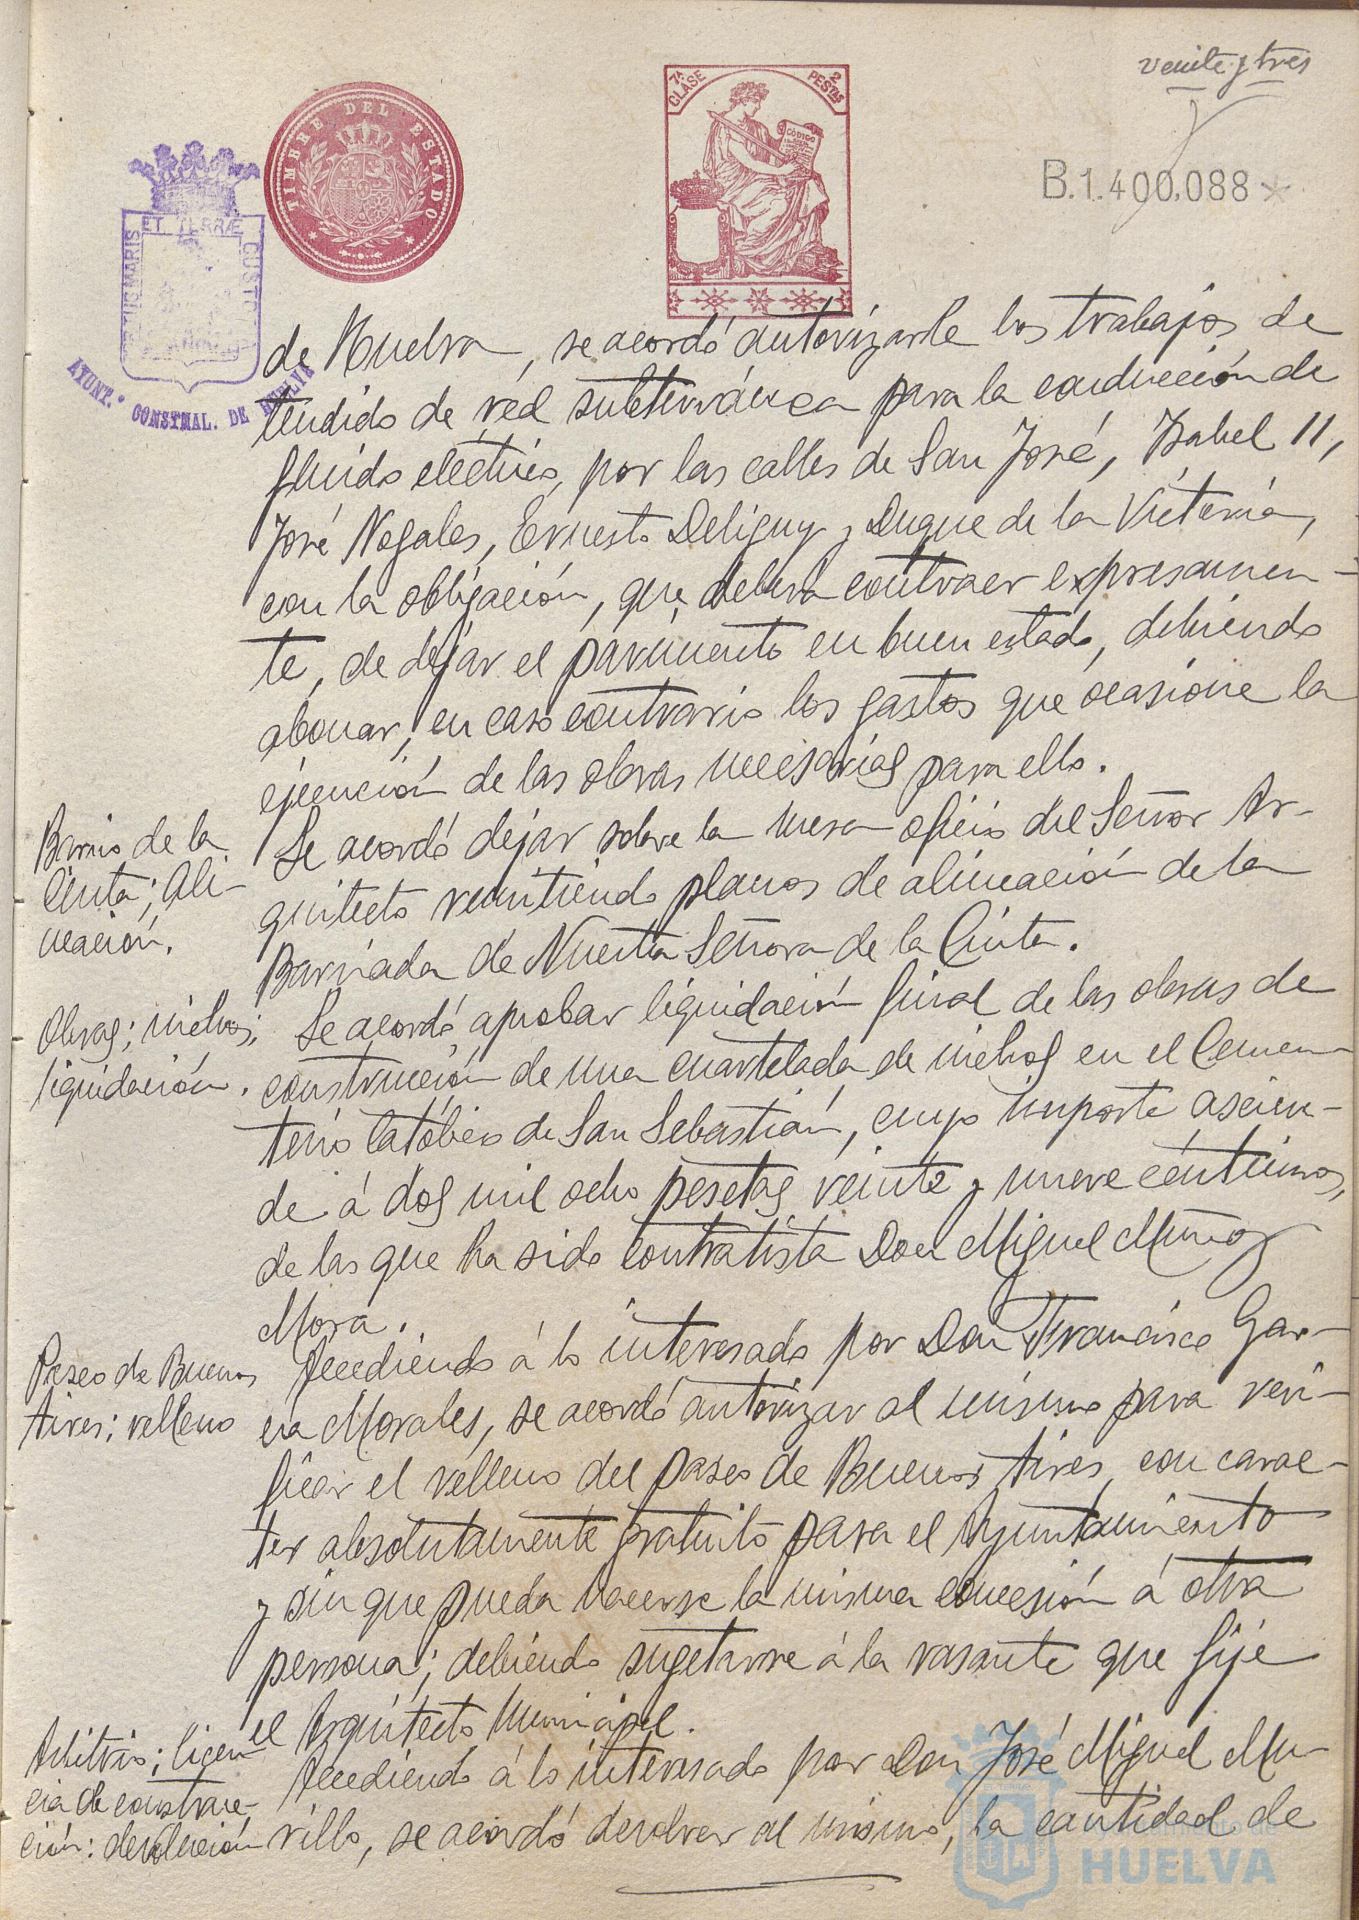 veinte y tres
TIMBRE DEL ESTADO
7ª CLASE 2 PESTAS
CÓDIGO
B.1.400,088*
ET TERRÆ
MARIS
CUSTO
AYUNT.º CONSTNAL. DE HUELVA
de Huelva, se acordó autorizarle los trabajos de
tendido de red subterránea para la conducción de
fluido eléctrico, por las calles de San José, Isabel II,
José Nogales, Ernesto Deligny y Duque de la Victoria,
con la obligación, que deberá contraer expresamen-
te, de dejar el pavimento en buen estado, debiendo
abonar, en caso contrario los gastos que ocasione la
ejecución de las obras necesarias para ello.
Barrio de la
Cinta; Ali-
neación.
Se acordó dejar sobre la mesa oficio del Señor Ar-
quitecto remitiendo planos de alineación de la
Barriada de Nuestra Señora de la Cinta.
Obras; nichos;
liquidación.
Se acordó, aprobar liquidación final de las obras de
construcción de una cuartelada de nichos en el Cemen-
terio Católico de San Sebastián, cuyo importe ascien-
de á dos mil ocho pesetas veinte y nueve céntimos,
de las que ha sido contratista Don Miguel Muñoz
Mora.
Paseo de Buenos
Aires; relleno
Accediendo á lo interesado por Don Francisco Gar-
cia Morales, se acordó autorizar al mismo para veri-
ficar el relleno del paseo de Buenos Aires, con carac-
ter absolutamente gratuito para el Ayuntamiento
y sin que pueda hacerse la misma concesión á otra
persona; debiendo sugetarse á la rasante que fije
el Arquitecto Municipal.
Arbitrio; licen-
cia de construc-
ción: devolución
Accediendo á lo interesado por Don José Miguel Mu-
rillo, se acordó devolver al mismo, la cantidad de
Ayuntamiento de
HUELVA